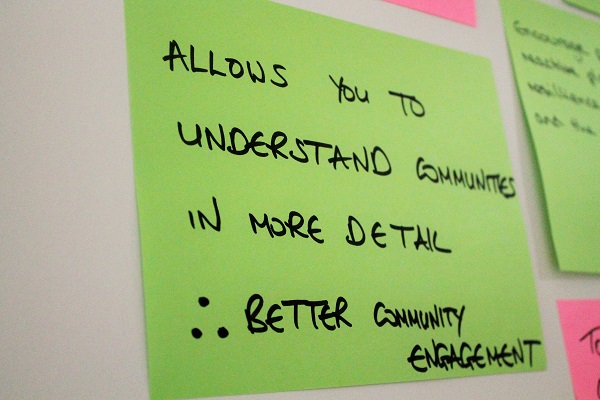 ALLOWS YOU TO
UNDERSTAND COMMUNITIES
IN MORE DETAIL
∴ BETTER COMMUNITY
ENGAGEMENT
Encourage
and the